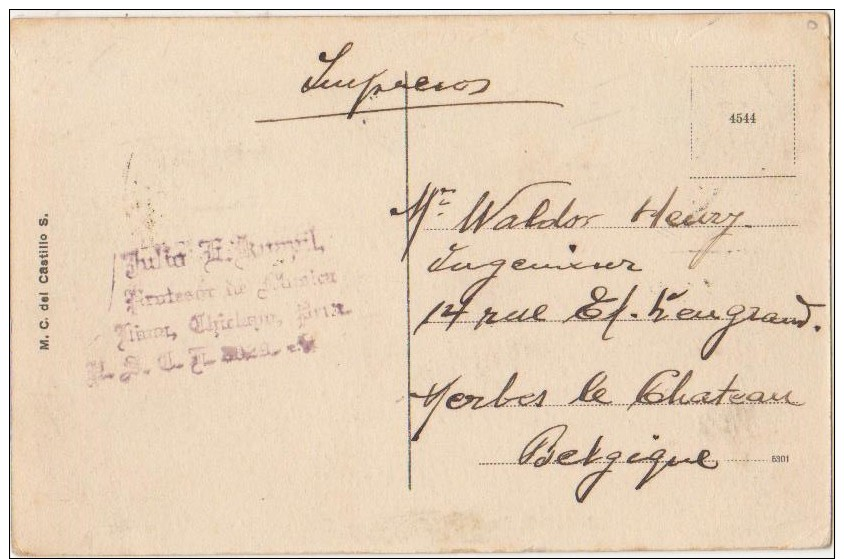 Impresos
4544
M. C. del Castillo S.
Julio E.
Profesor de Musica
Chiclayo,
Mr. Waldor Henry
Ingenieur
14 rue
Merbes le Chateau
Belgique
5301